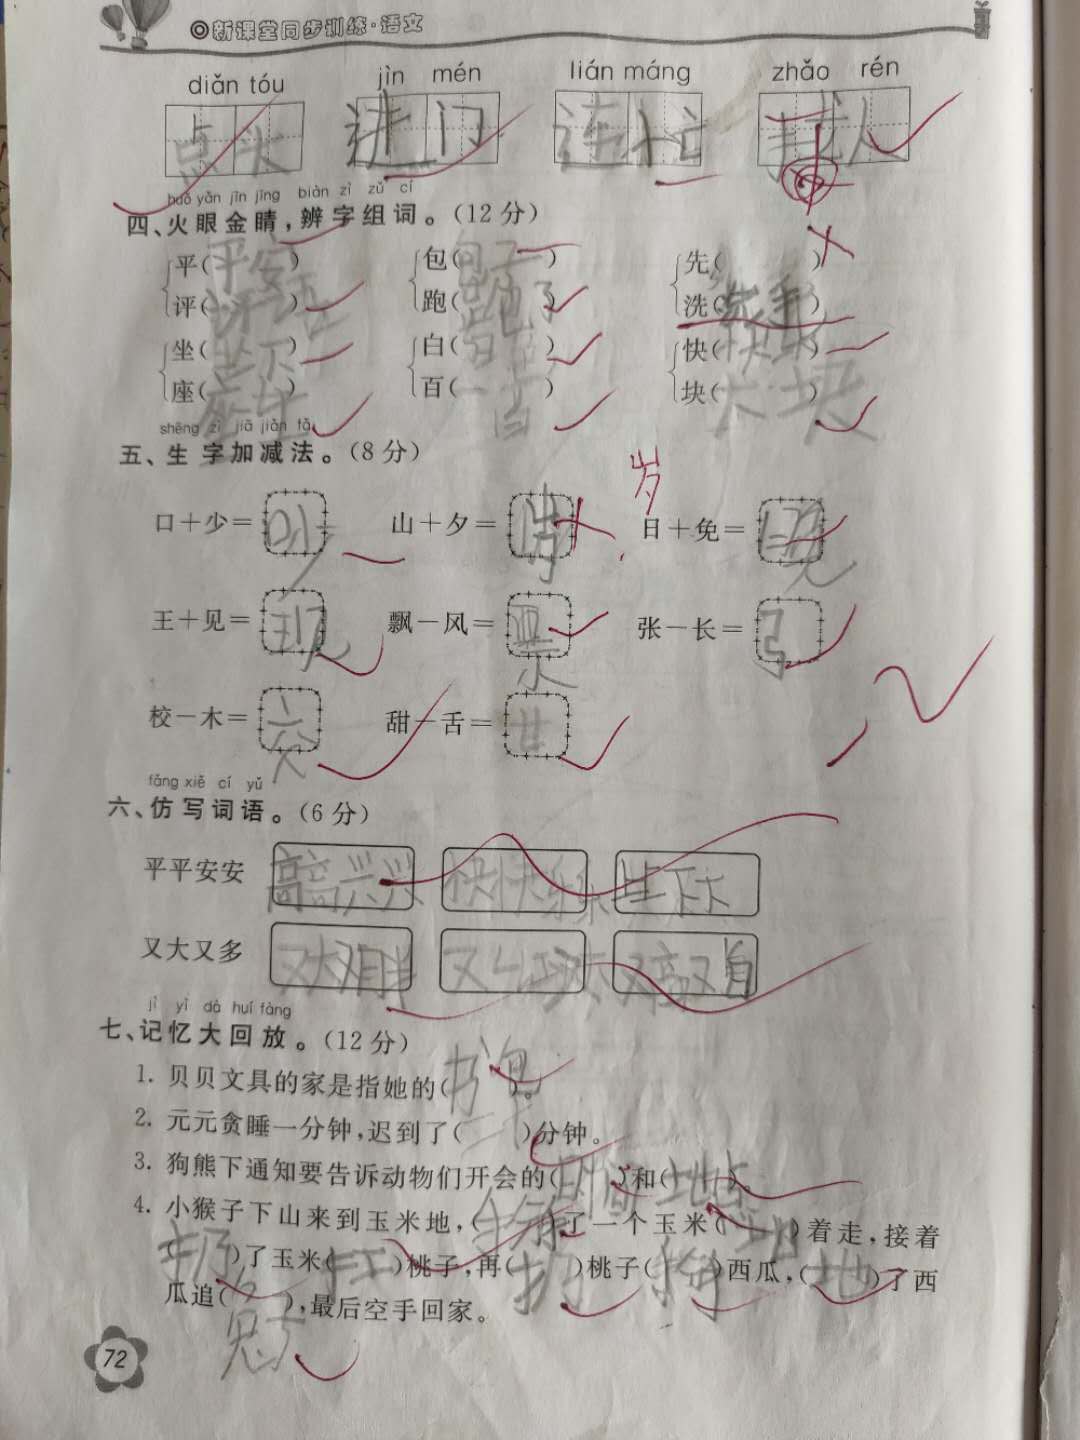 新课堂同步训练·语文
diǎn tóu jìn mén lián máng zhǎo rén
点头 进门 连忙 找人
huǒ yǎn jīn jīng biàn zì zǔ cí
四、火眼金睛,辨字组词。(12分)
平(平安) 包( ) 先( )
评( ) 跑(跑了) 洗(洗手)
坐(坐下) 白( ) 快(快乐)
座( ) 百(一百) 块(大块)
shēng zì jiā jiǎn fǎ
五、生字加减法。(8分)
岁
口+少=吵 山+夕= 日+免=晚
王+见=现 飘-风=票 张-长=弓
校-木=交 甜-舌=甘
fǎng xiě cí yǔ
六、仿写词语。(6分)
平平安安 高高兴兴 快快乐乐
又大又多 又大又胖 又高又
jì yì dà huí fàng
七、记忆大回放。(12分)
1. 贝贝文具的家是指她的(书包)。
2. 元元贪睡一分钟,迟到了(二十)分钟。
3. 狗熊下通知要告诉动物们开会的(时间)和(地点)。
4. 小猴子下山来到玉米地,( )了一个玉米( )着走,接着
(扔)了玉米(扛)桃子,再(扔)桃子( )西瓜,( )了西
瓜追(兔子),最后空手回家。
72